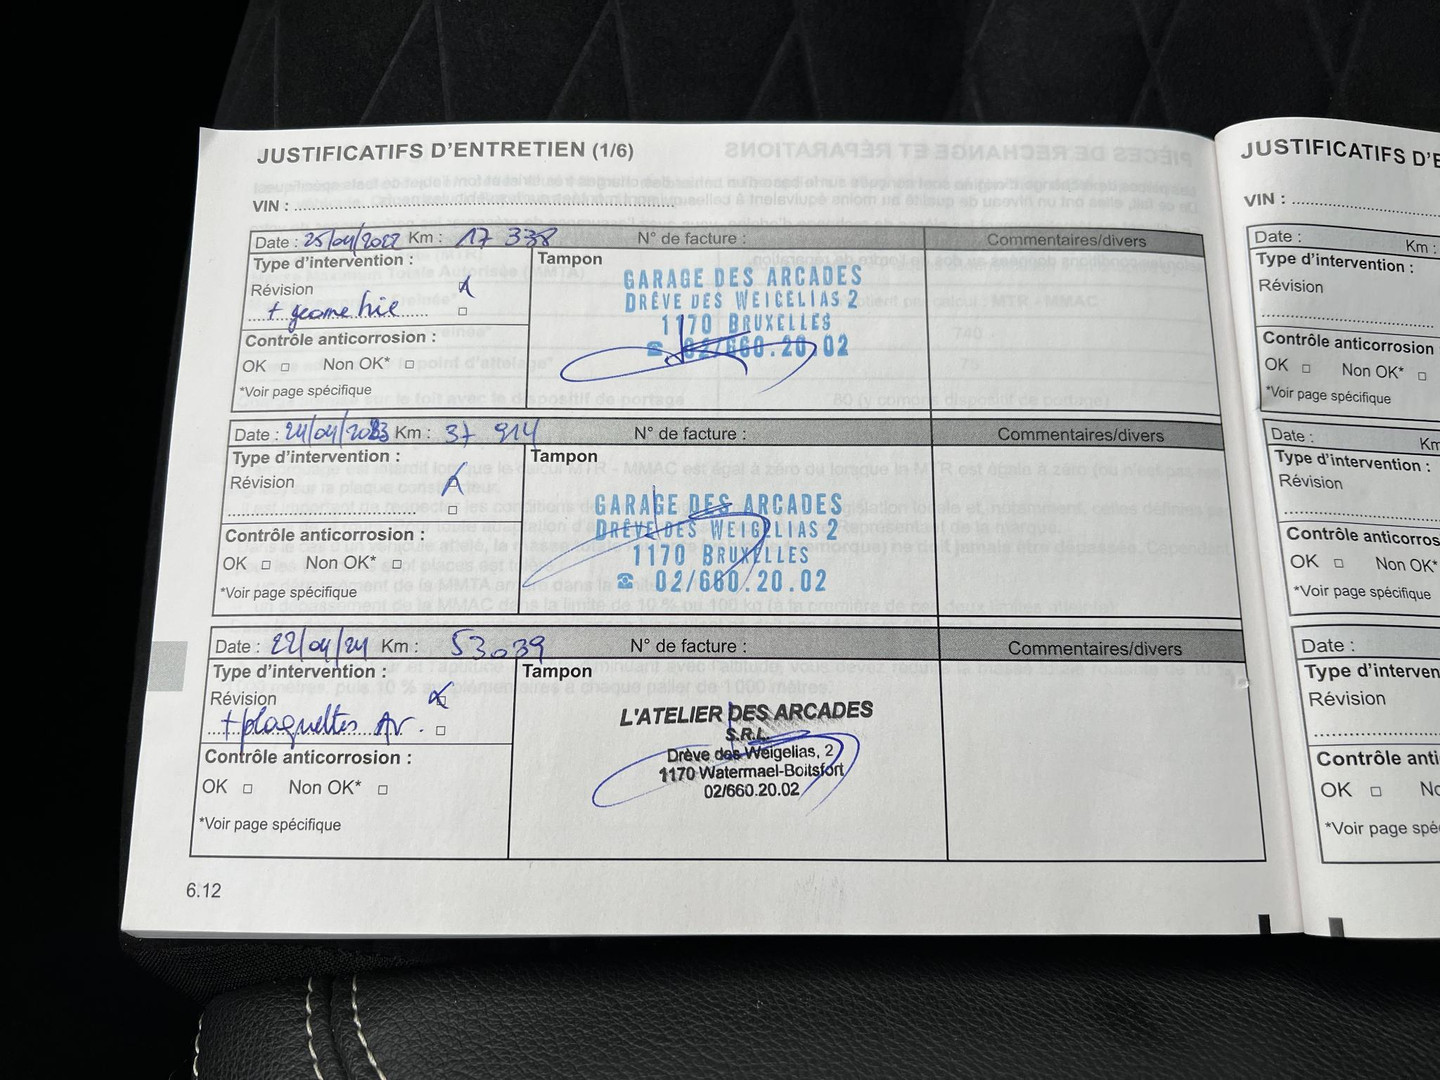 JUSTIFICATIFS D'ENTRETIEN (1/6)
VIN :
Date : 25/04/2022 Km : 17 338 N° de facture : Commentaires/divers
Type d'intervention : Tampon
Révision
+ geometrie
Contrôle anticorrosion :
OK □ Non OK* □
*Voir page spécifique
GARAGE DES ARCADES
DRÊVE DES WEIGELIAS 2
1170 BRUXELLES
☎ 02/660.20.02
Date : 24/04/2023 Km : 37 914 N° de facture : Commentaires/divers
Type d'intervention : Tampon
Révision
Contrôle anticorrosion :
OK □ Non OK* □
*Voir page spécifique
GARAGE DES ARCADES
DRÊVE DES WEIGELIAS 2
1170 BRUXELLES
☎ 02/660.20.02
Date : 22/04/24 Km : 53.039 N° de facture : Commentaires/divers
Type d'intervention : Tampon
Révision
+ plaquettes Av.
Contrôle anticorrosion :
OK □ Non OK* □
*Voir page spécifique
L'ATELIER DES ARCADES
S.R.L.
Drève des Weigelias, 2
1170 Watermael-Boitsfort
02/660.20.02
6.12
JUSTIFICATIFS D'E
VIN :
Date : Km :
Type d'intervention :
Révision
Contrôle anticorrosion
OK □ Non OK* □
*Voir page spécifique
Date : Km
Type d'intervention :
Révision
Contrôle anticorros
OK □ Non OK*
*Voir page spécifique
Date :
Type d'interven
Révision
Contrôle anti
OK □ No
*Voir page spé